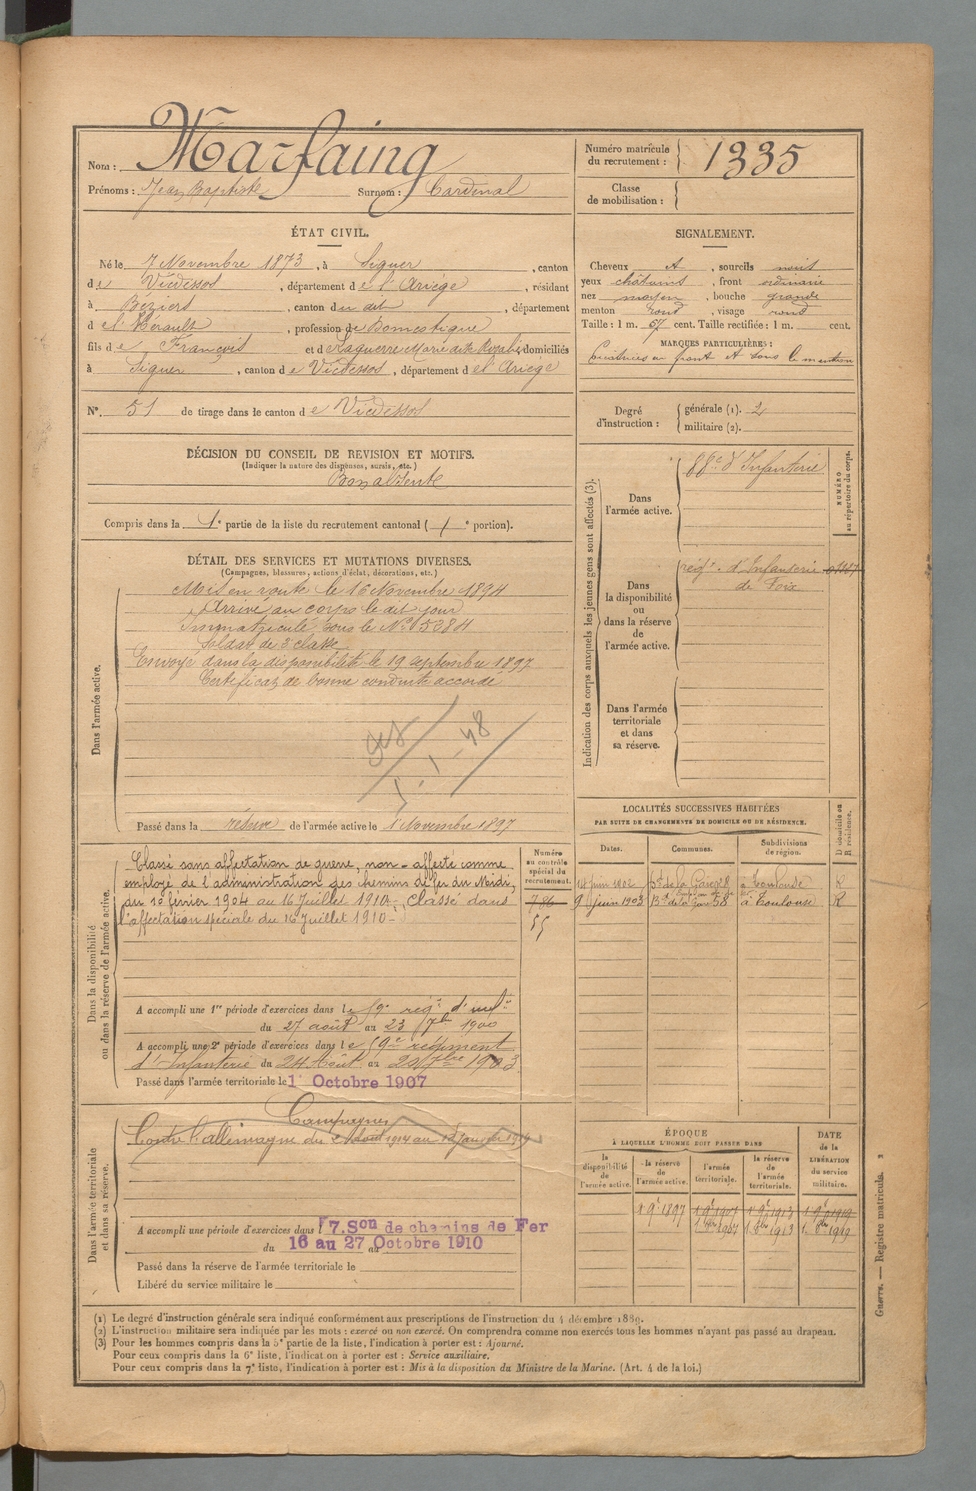 Nom : Marfaing
Prénoms : Jean Baptiste Surnom : Cardenal
Numéro matricule du recrutement : 1335
Classe de mobilisation :
ÉTAT CIVIL.
Né le 7 Novembre 1873, à Siguer, canton
de Vicdessos, département de l'Ariège, résidant
à Béziers, canton du dit, département
de l'Hérault, profession de Domestique
fils de François et de Laguerre Marie dite Rosalie, domiciliés
à Siguer, canton de Vicdessos, département de l'Ariège
N° 51 de tirage dans le canton de Vicdessos
SIGNALEMENT.
Cheveux et, sourcils noirs
yeux châtains, front ordinaire
nez moyen, bouche grande
menton rond, visage rond
Taille : 1 m. 67 cent. Taille rectifiée : 1 m. cent.
MARQUES PARTICULIÈRES :
Cicatrices au front et sous le menton
Degré d'instruction : générale (1). 2
militaire (2).
DÉCISION DU CONSEIL DE REVISION ET MOTIFS.
(Indiquer la nature des dispenses, sursis, etc.)
Bon absent
Compris dans la 1e partie de la liste du recrutement cantonal (1e portion).
DÉTAIL DES SERVICES ET MUTATIONS DIVERSES.
(Campagnes, blessures, actions d'éclat, décorations, etc.)
Dans l'armée active.
Mis en route le 16 Novembre 1894
Arrivé au corps le dit jour
Immatriculé sous le N° 5284
Soldat de 2e classe
Envoyé dans la disponibilité le 19 septembre 1897
Certificat de bonne conduite accordé
1-1-48
Passé dans la réserve de l'armée active le 1 Novembre 1897
Indication des corps auxquels les jeunes gens sont affectés (3).
NUMÉRO au répertoire du corps.
Dans l'armée active.
88e d'Infanterie
Dans la disponibilité ou dans la réserve de l'armée active.
régt d'Infanterie
de Foix
Dans l'armée territoriale et dans sa réserve.
Dans la disponibilité ou dans la réserve de l'armée active.
Classé sans affectation de guerre, non-affecté comme
employé de l'administration des chemins de fer du Midi,
du 10 février 1904 au 16 Juillet 1910. Classé dans
l'affectation spéciale du 16 Juillet 1910 -
Numéro au contrôle spécial du recrutement.
786
55
A accompli une 1re période d'exercices dans le 59e régt d'infie
du 27 août au 23 7bre 1900
A accompli une 2e période d'exercices dans le 59e régiment
d'Infanterie du 24 Août au 20 7bre 1903
Passé dans l'armée territoriale le 1 Octobre 1907
LOCALITÉS SUCCESSIVES HABITÉES
PAR SUITE DE CHANGEMENTS DE DOMICILE OU DE RÉSIDENCE.
Dates. Communes. Subdivisions de région. D domicile ou R résidence.
14 juin 1902 Bd de la Gare 8 à Toulouse R
9 juin 1903 Bd de la Gare 58 à Toulouse R
Dans l'armée territoriale et dans sa réserve.
Campagnes
Contre l'allemagne du 2 Août 1914 au
A accompli une période d'exercices dans 7. Son de chemins de Fer
du 16 au 27 Octobre 1910
Passé dans la réserve de l'armée territoriale le
Libéré du service militaire le
ÉPOQUE
À LAQUELLE L'HOMME DOIT PASSER DANS
DATE de la LIBÉRATION du service militaire.
la disponibilité de l'armée active. la réserve de l'armée active. l'armée territoriale. la réserve de l'armée territoriale.
1 9e 1897 1 9e 1907 1 9e 1913 1 9e 1919
1 8bre 1907 1 8bre 1913 1 8bre 1919
Guerre. — Registre matricula. 2
(1) Le degré d'instruction générale sera indiqué conformément aux prescriptions de l'instruction du 4 décembre 1889.
(2) L'instruction militaire sera indiquée par les mots : exercé ou non exercé. On comprendra comme non exercés tous les hommes n'ayant pas passé au drapeau.
(3) Pour les hommes compris dans la 5e partie de la liste, l'indication à porter est : Ajourné.
Pour ceux compris dans la 6e liste, l'indication à porter est : Service auxiliaire.
Pour ceux compris dans la 7e liste, l'indication à porter est : Mis à la disposition du Ministre de la Marine. (Art. 4 de la loi.)